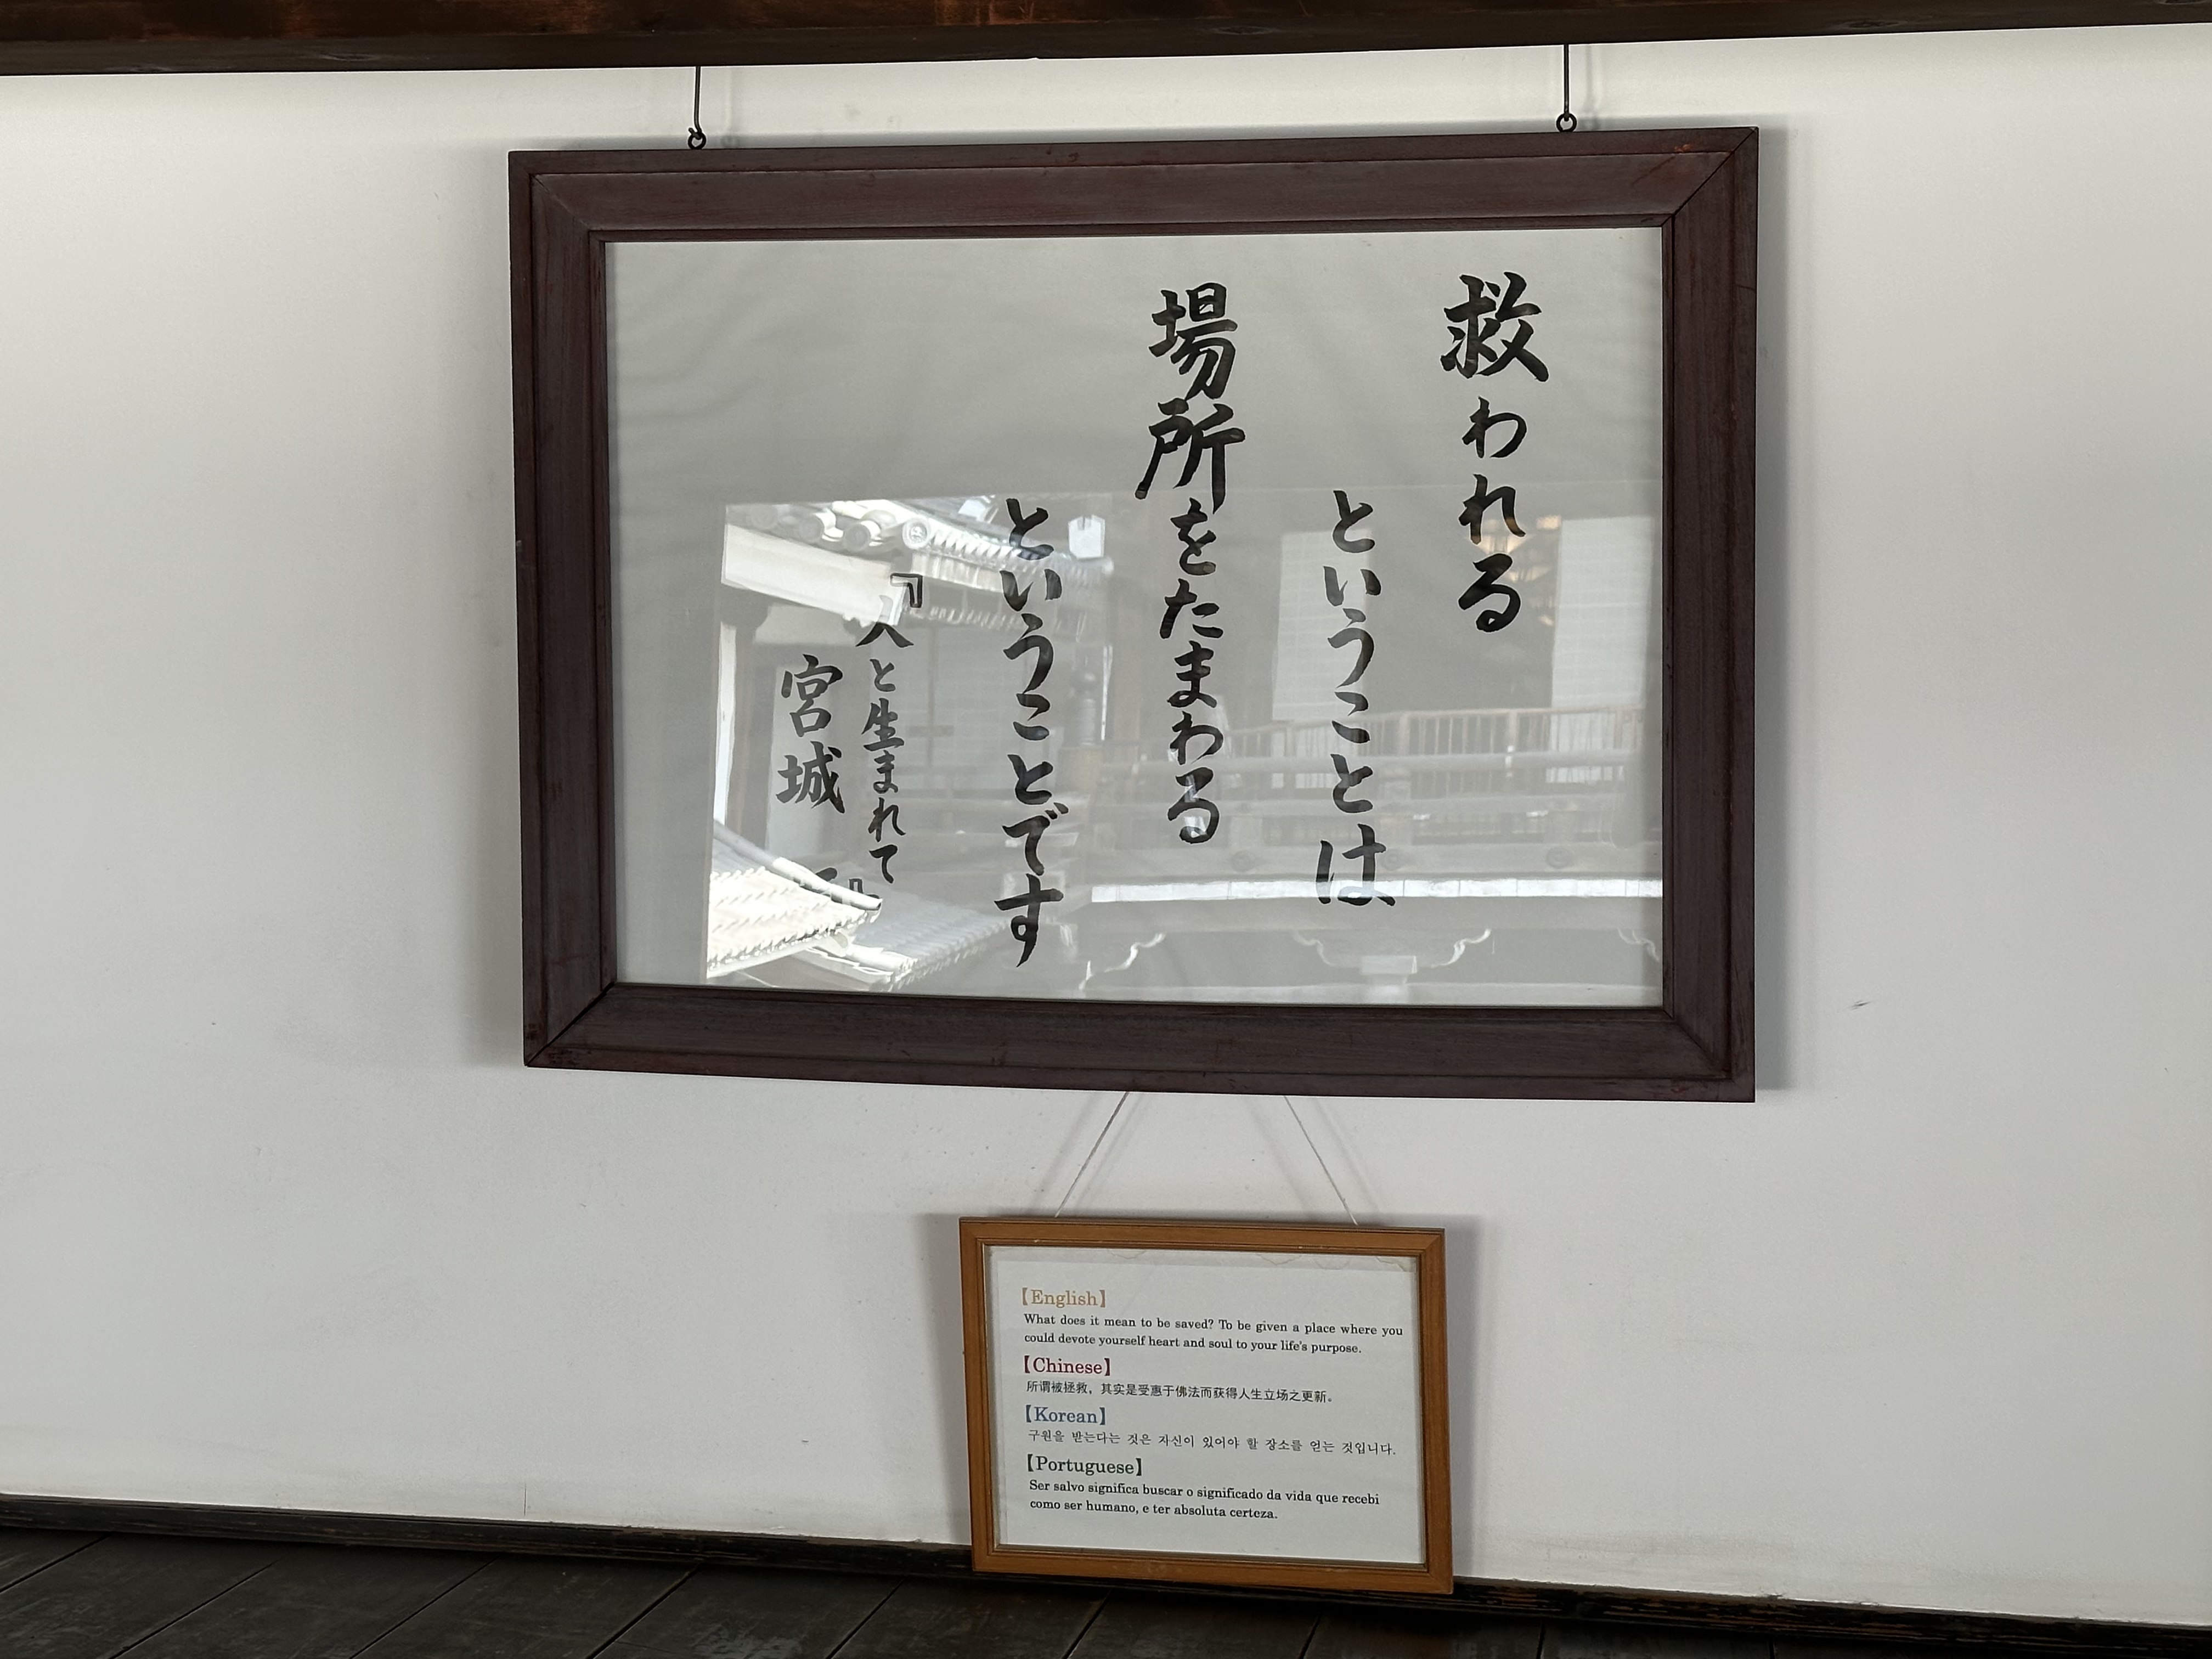 救われる
ということは
場所をたまわる
ということです
『人と生まれて』
宮城
【English】
What does it mean to be saved? To be given a place where you
could devote yourself heart and soul to your life's purpose.
【Chinese】
所谓被拯救，其实是受惠于佛法而获得人生立场之更新。
【Korean】
구원을 받는다는 것은 자신이 있어야 할 장소를 얻는 것입니다.
【Portuguese】
Ser salvo significa buscar o significado da vida que recebi
como ser humano, e ter absoluta certeza.